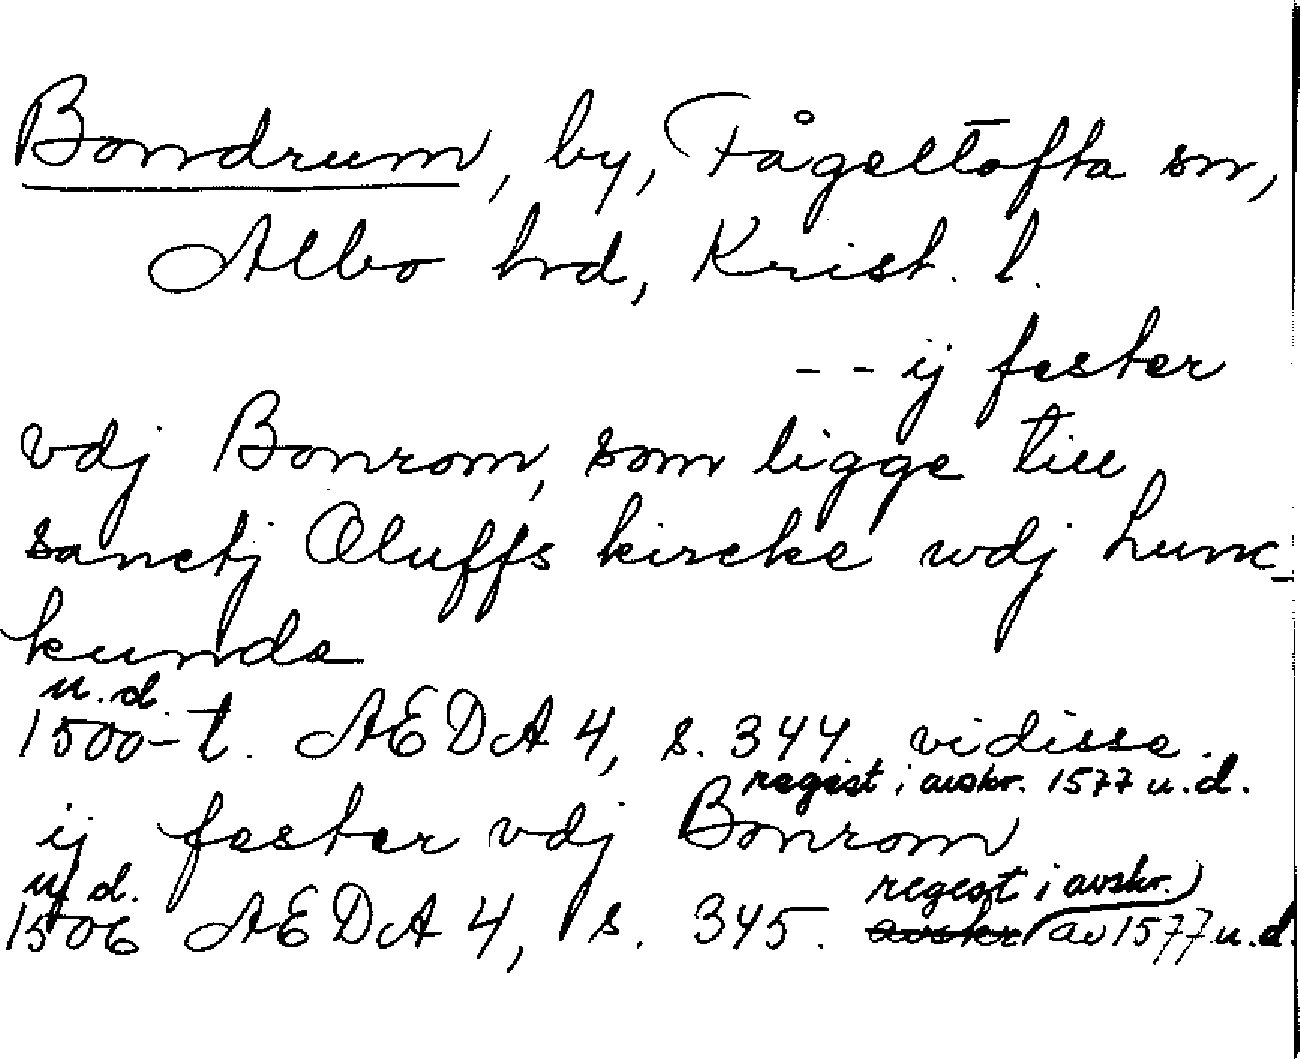 Bondrum, by, Fågeltofta sn,
Albo hrd, Krist. l.
-- ij fester
vdj Bonrom, som ligge till
sanctj Oluffs kircke wdj Lunc-
kunde
u.d.
1500-t. AEDA 4, s. 344 vidisse.
regest i avskr. 1577 u.d.
ij fester vdj Bonrom
u.d.
regest i avskr.
1506 AEDA 4, s. 345. avskr av 1577 u.d.